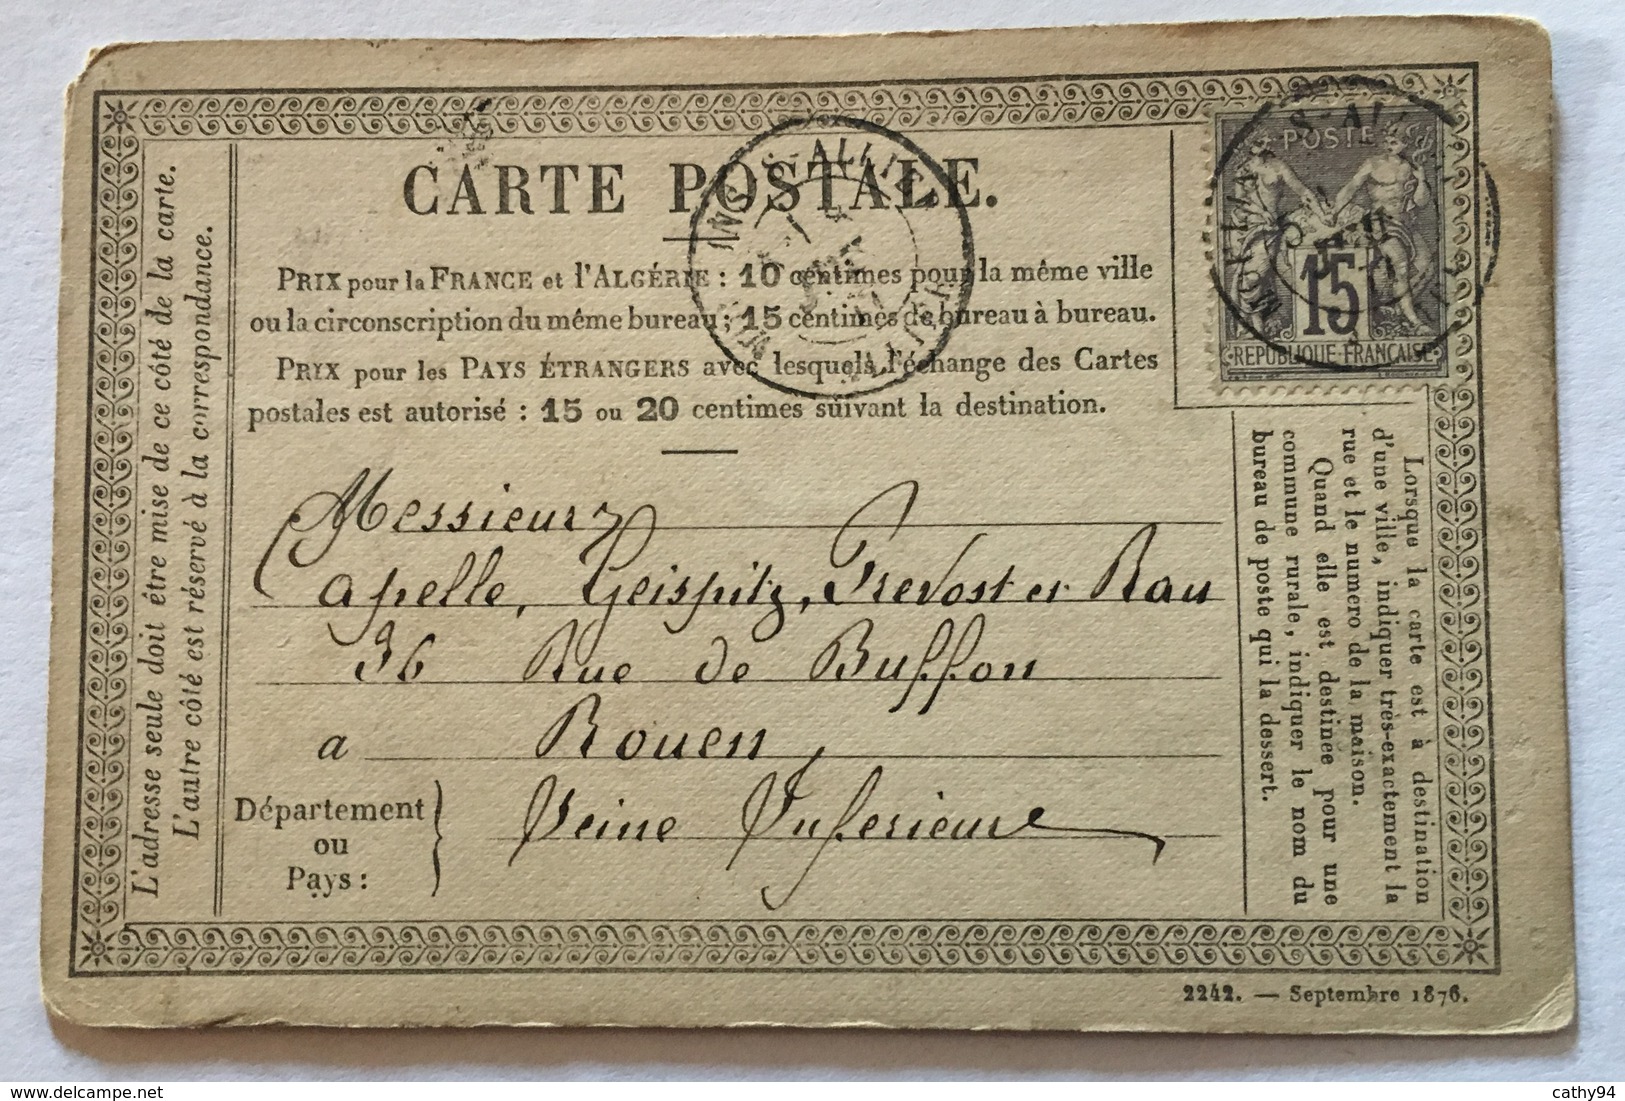 CARTE POSTALE.
PRIX pour la FRANCE et l'ALGÉRIE : 10 centimes pour la même ville
ou la circonscription du même bureau ; 15 centimes de bureau à bureau.
PRIX pour les PAYS ÉTRANGERS avec lesquels l'échange des Cartes
postales est autorisé : 15 ou 20 centimes suivant la destination.
POSTE
15
REPUBLIQUE-FRANÇAISE
L'adresse seule doit être mise de ce côté de la carte.
L'autre côté est réservé à la correspondance.
Messieurs
Capelle, Geispitz, Prevost et Rau
36 Rue de Buffon
a Rouen,
Département
ou
Pays :
Seine Inferieure
Lorsque la carte est à destination
d'une ville, indiquer très-exactement la
rue et le numero de la maison.
Quand elle est destinée pour une
commune rurale, indiquer le nom du
bureau de poste qui la dessert.
2242. — Septembre 1876.
cathy94